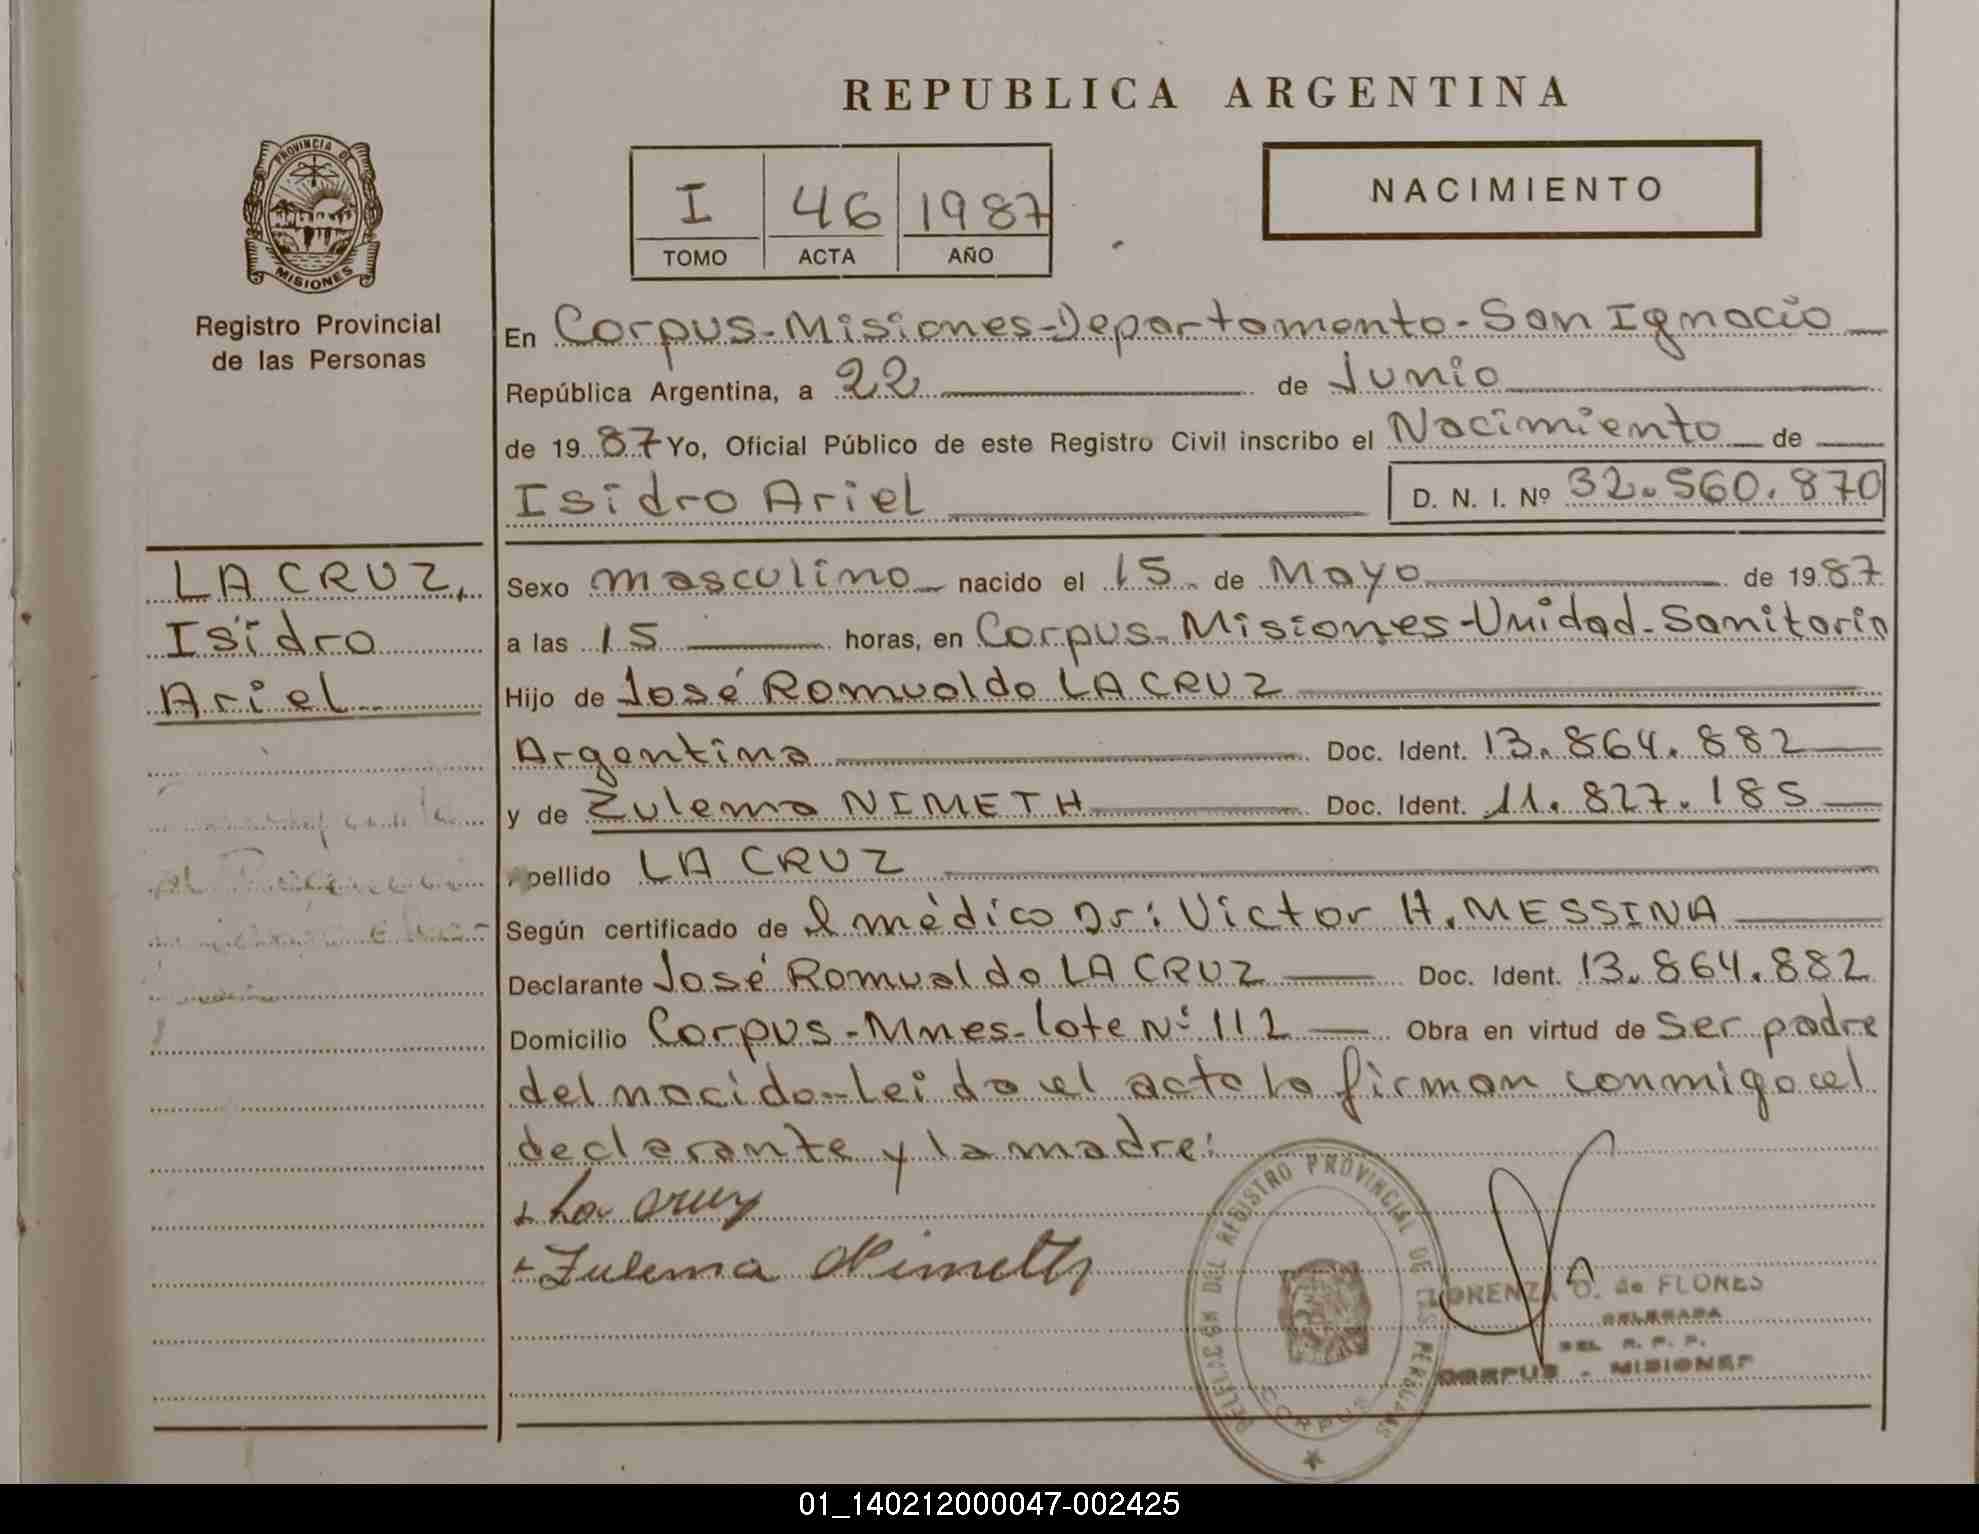 REPUBLICA ARGENTINA
PROVINCIA DE MISIONES
Registro Provincial
de las Personas
I 46 1987
TOMO ACTA AÑO
NACIMIENTO
En Corpus-Misiones-Departamento-San Ignacio
República Argentina, a 22 de Junio
de 19 87 Yo, Oficial Público de este Registro Civil inscribo el Nacimiento de
Isidro Ariel D. N. I. Nº 32.560.870
LA CRUZ,
Isidro
Ariel
Sexo masculino nacido el 15 de Mayo de 19 87
a las 15 horas, en Corpus-Misiones-Unidad-Sanitaria
Hijo de José Romualdo LA CRUZ
Argentina Doc. Ident. 13.864.882
y de Zulema NIMETH Doc. Ident. 11.827.185
Apellido LA CRUZ
Según certificado de el médico Dr: Victor H. MESSINA
Declarante José Romualdo LA CRUZ Doc. Ident. 13.864.882
Domicilio Corpus-Mnes-lote Nº 112 Obra en virtud de ser padre
del nacido-Leida el acta la firman conmigo el
declarante y la madre:
La Cruz
Zulema Nimeth
DEL REGISTRO PROVINCIAL DE LAS PERSONAS
CORPUS
LORENZA O. de FLORES
DELEGADA
DEL R. P. P.
CORPUS - MISIONES
01_140212000047-002425